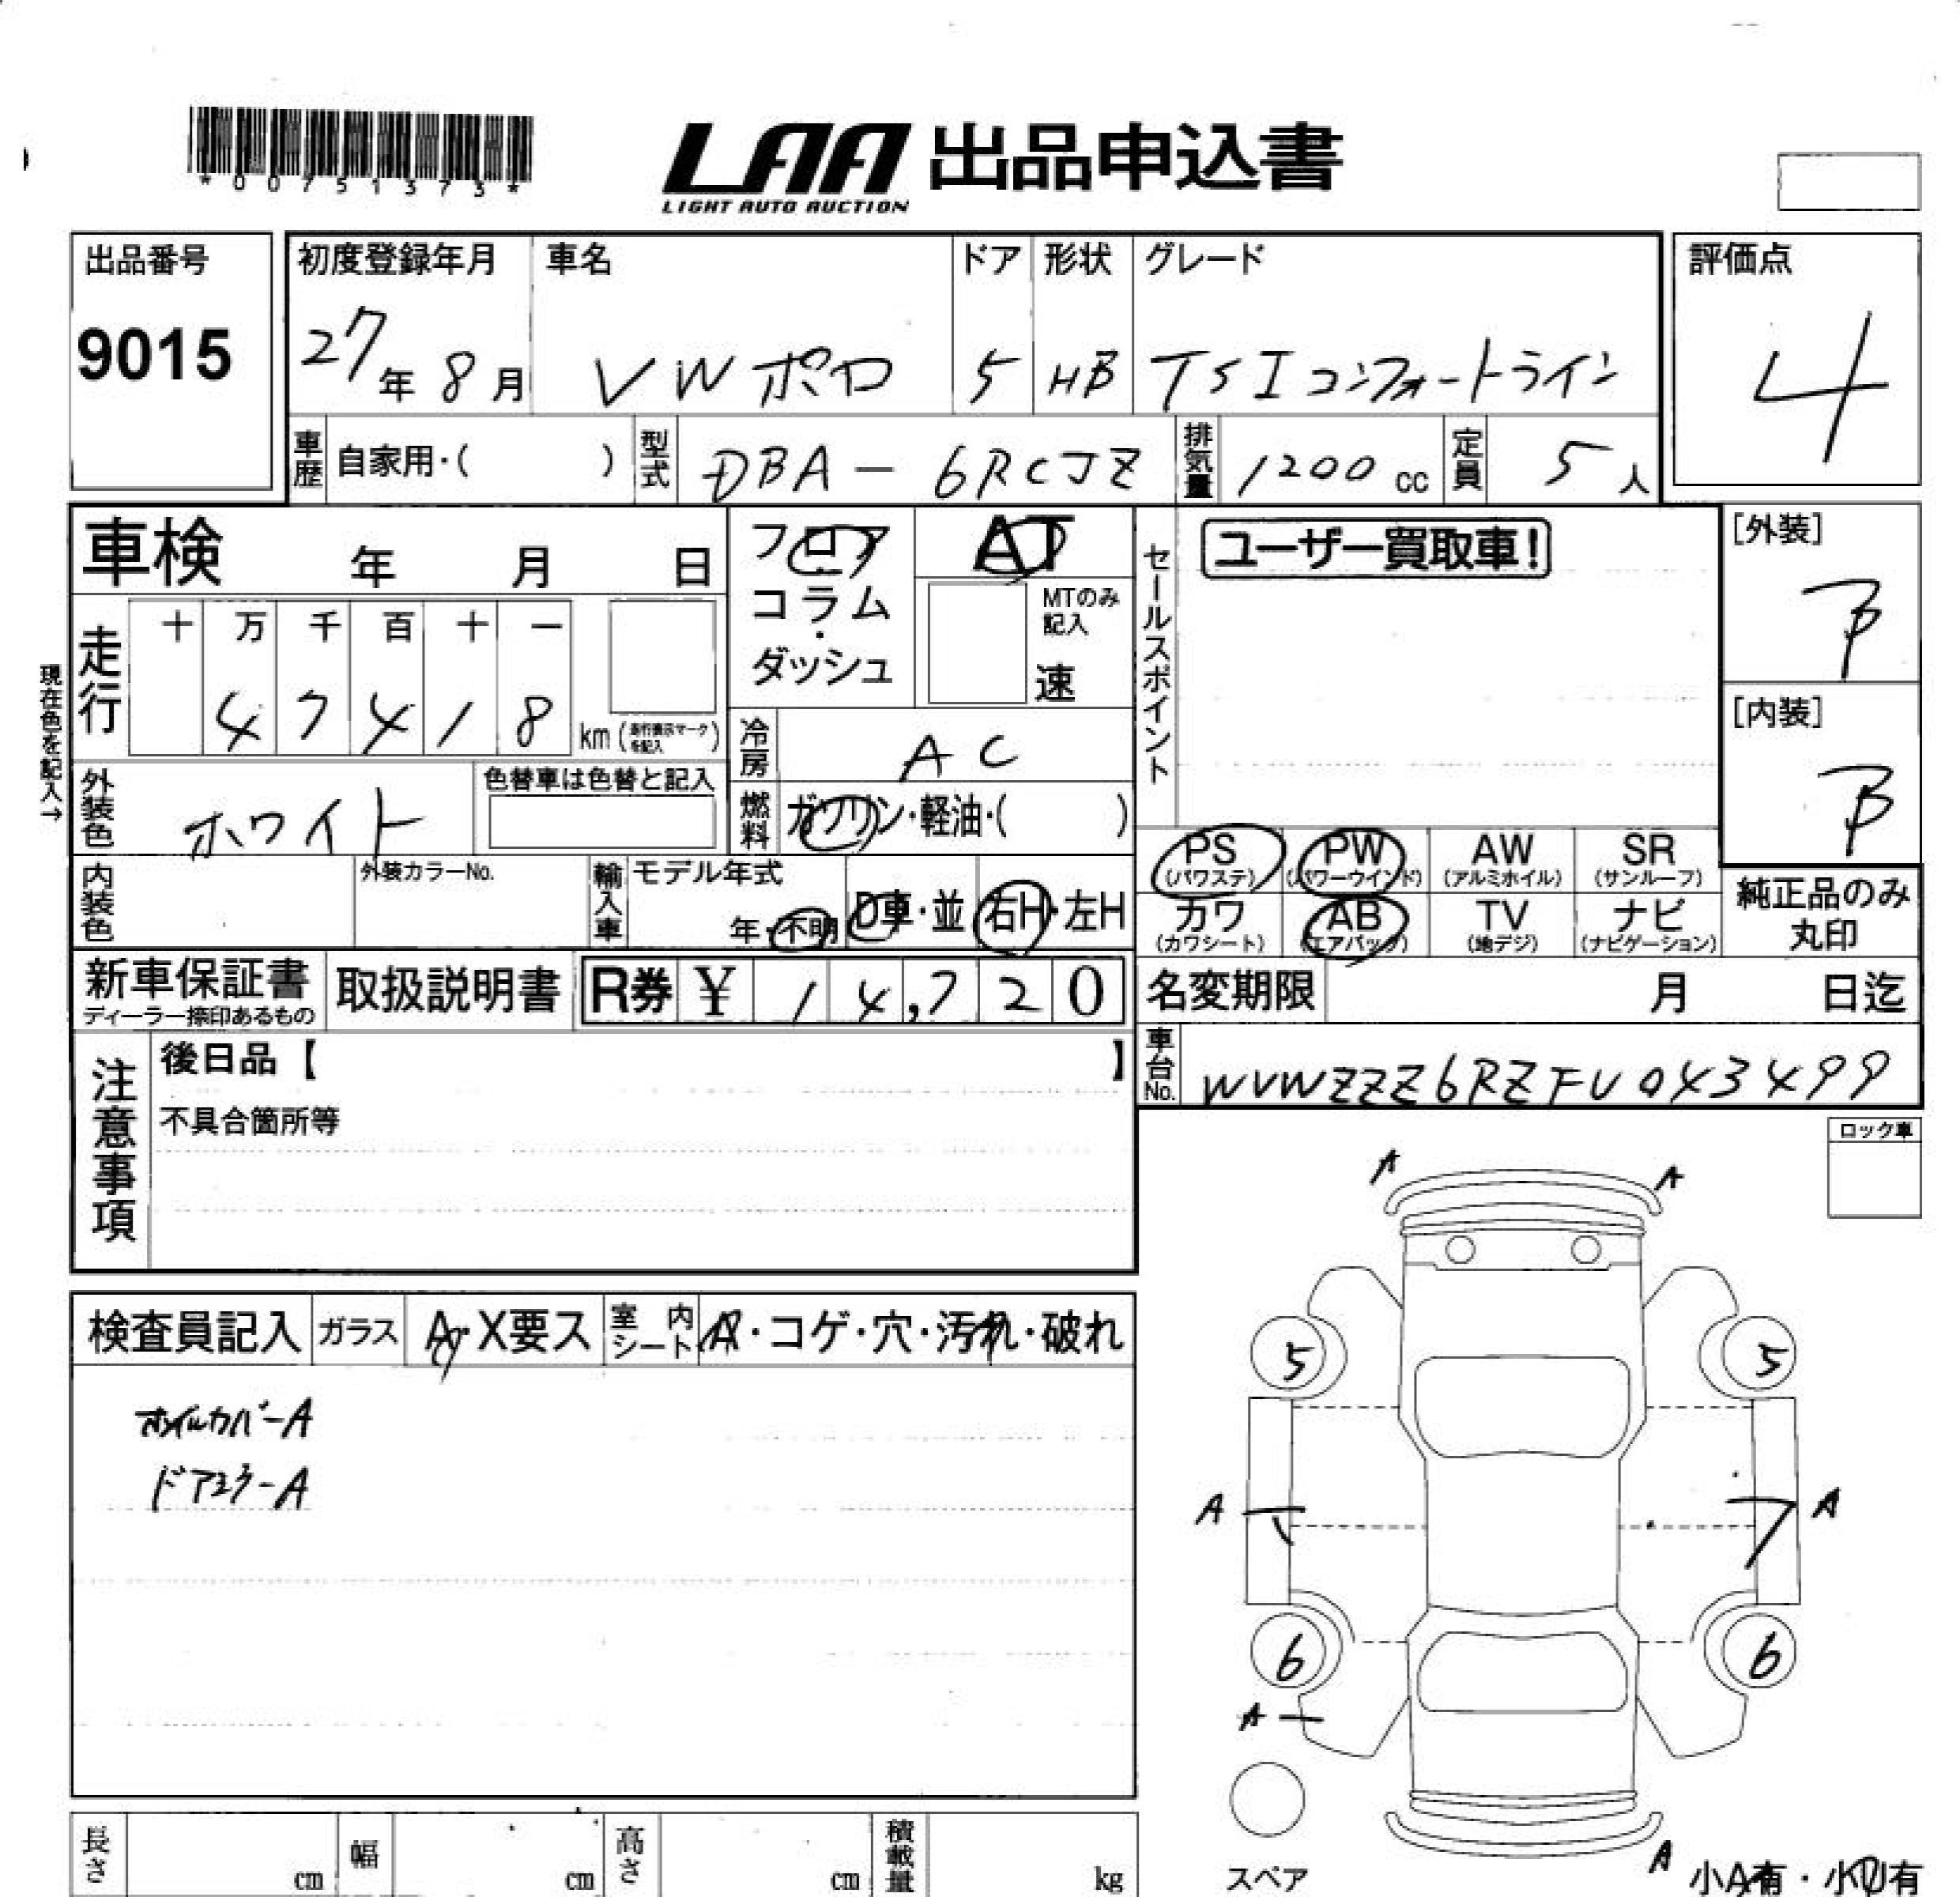 *00751373*
LAA 出品申込書
LIGHT AUTO AUCTION
出品番号
9015
初度登録年月
27年8月
車名
VWポロ
ドア
5
形状
HB
グレード
TSIコンフォートライン
評価点
4
車歴 自家用・( )
型式 DBA-6RCJZ
排気量 1200cc
定員 5人
車検 年 月 日
フロア
コラム
・
ダッシュ
AT
MTのみ
記入
速
セールスポイント
ユーザー買取車!
[外装]
B
[内装]
B
現在色を記入→
走行
十 万 千 百 十 一
4 7 4 1 8 km
冷房 AC
燃料 ガソリン・軽油・( )
外装色 ホワイト
色替車は色替と記入
内装色
外装カラーNo.
輸入車
モデル年式
年・不明
D車・並
右H・左H
PS (パワステ)
PW (パワーウインド)
AW (アルミホイル)
SR (サンルーフ)
カワ (カワシート)
AB (エアバック)
TV (地デジ)
ナビ (ナビゲーション)
純正品のみ
丸印
新車保証書
ディーラー捺印あるもの
取扱説明書
R券 ¥ 14,720
名変期限 月 日迄
車台No. WVWZZZ6RZFU043499
注意事項
後日品【 】
不具合箇所等
ロック車
検査員記入
ガラス A・X要ス
室内シート A・コゲ・穴・汚れ・破れ
ホイルカバーA
ドアミラーA
A A
5 5
A A
6 6
A
スペア
A
小A有・小U有
長さ cm
幅 cm
高さ cm
積載量 kg